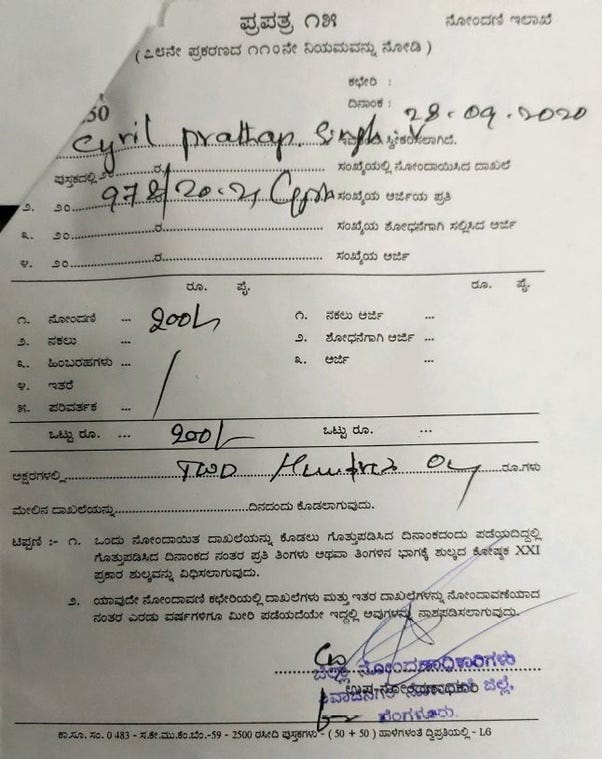 ಪ್ರಪತ್ರ ೧೫ ನೋಂದಣಿ ಇಲಾಖೆ
(೭೮ನೇ ಪ್ರಕರಣದ ೧೧೦ನೇ ನಿಯಮವನ್ನು ನೋಡಿ)
ಕಛೇರಿ :
50 ದಿನಾಂಕ : 28.09.2020
Cyril Prathap Singh ಸ್ವೀಕರಿಸಲಾಗಿದೆ.
ಪುಸ್ತಕದಲ್ಲಿ ೨೦ ರ ಸಂಖ್ಯೆಯಲ್ಲಿ ನೋಂದಾಯಿಸಿದ ದಾಖಲೆ
೨. ೨೦ 978/20-21 ಸಂಖ್ಯೆಯ ಅರ್ಜಿಯ ಪ್ರತಿ
೩. ೨೦ ರ ಸಂಖ್ಯೆಯ ಶೋಧನೆಗಾಗಿ ಸಲ್ಲಿಸಿದ ಅರ್ಜಿ
೪. ೨೦ ರ ಸಂಖ್ಯೆಯ ಅರ್ಜಿ
ರೂ. ಪೈ. ರೂ. ಪೈ.
೧. ನೋಂದಣಿ ... 200/- ೧. ನಕಲು ಅರ್ಜಿ ...
೨. ನಕಲು ... ೨. ಶೋಧನೆಗಾಗಿ ಅರ್ಜಿ ...
೩. ಹಿಂಬರಹಗಳು ... ೩. ಅರ್ಜಿ ...
೪. ಇತರೆ
೫. ಪರಿವರ್ತಕ ...
ಒಟ್ಟು ರೂ. ... 200/- ಒಟ್ಟು ರೂ. ...
ಅಕ್ಷರಗಳಲ್ಲಿ Two Hundred Only ರೂ.ಗಳು
ಮೇಲಿನ ದಾಖಲೆಯನ್ನು ದಿನದಂದು ಕೊಡಲಾಗುವುದು.
ಟಿಪ್ಪಣಿ :- ೧. ಒಂದು ನೋಂದಾಯಿತ ದಾಖಲೆಯನ್ನು ಕೊಡಲು ಗೊತ್ತುಪಡಿಸಿದ ದಿನಾಂಕದಂದು ಪಡೆಯದಿದ್ದಲ್ಲಿ
ಗೊತ್ತುಪಡಿಸಿದ ದಿನಾಂಕದ ನಂತರ ಪ್ರತಿ ತಿಂಗಳು ಅಥವಾ ತಿಂಗಳಿನ ಭಾಗಕ್ಕೆ ಶುಲ್ಕದ ಕೋಷ್ಠಕ XXI
ಪ್ರಕಾರ ಶುಲ್ಕವನ್ನು ವಿಧಿಸಲಾಗುವುದು.
೨. ಯಾವುದೇ ನೋಂದಾವಣಿ ಕಛೇರಿಯಲ್ಲಿ ದಾಖಲೆಗಳು ಮತ್ತು ಇತರ ದಾಖಲೆಗಳನ್ನು ನೋಂದಾವಣೆಯಾದ
ನಂತರ ಎರಡು ವರ್ಷಗಳಿಗೂ ಮೀರಿ ಪಡೆಯದೆಯೇ ಇದ್ದಲ್ಲಿ ಅವುಗಳನ್ನು ನಾಶಪಡಿಸಲಾಗುವುದು.
ಜಿಲ್ಲಾ ನೋಂದಣಾಧಿಕಾರಿಗಳು
ಜಿಲ್ಲೆ,
ಬೆಂಗಳೂರು.
ಕಾ.ಸೂ. ಸಂ. 0 483 - ಸ.ಕೇ.ಮು.ಕೆಂ.ಬೆಂ.-59 - 2500 ರಸೀದಿ ಪುಸ್ತಕಗಳು - (50 + 50) ಹಾಳೆಗಳಂತೆ ದ್ವಿಪ್ರತಿಯಲ್ಲಿ - LG